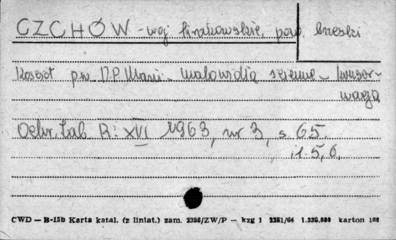 CZCHÓW - woj. krakowskie, pow. brzeski
kościół p.w. N.P. Marii - malowidła ścienne - konser-
wacja
Ochr. Zab. R: XVI 1963, nr 3, s. 65
il. 5, 6.
CWD — B-15b Karta katal. (z liniat.) zam. 2398/ZW/P — kzg 1 2351/64 1.220.000 karton 180